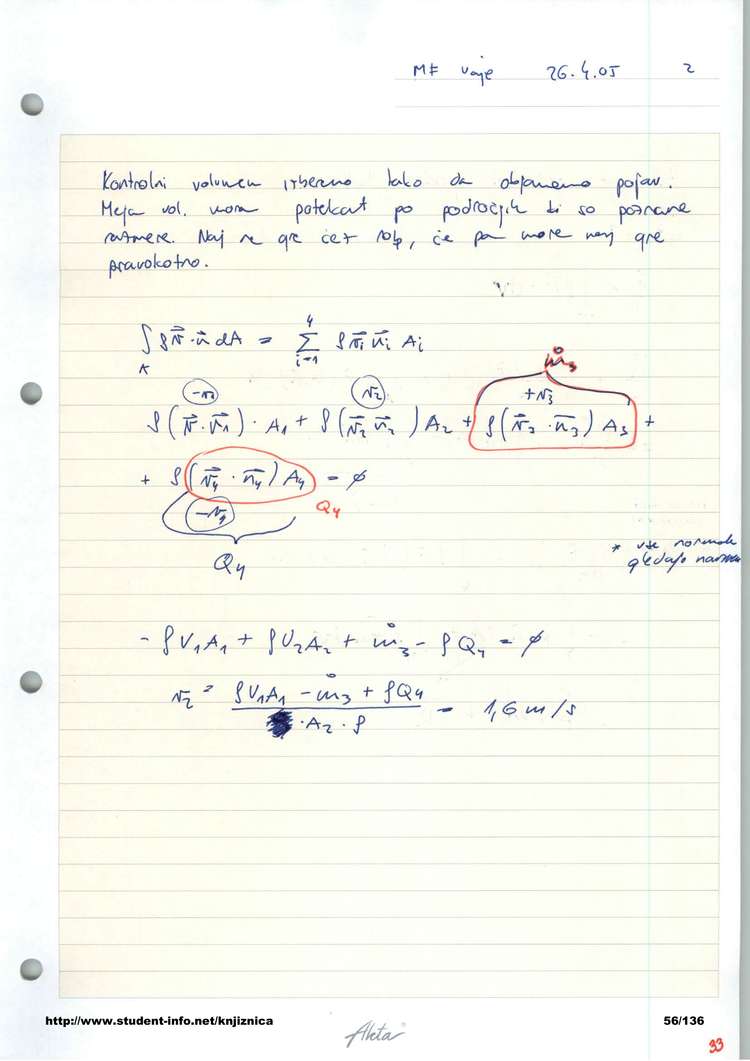 MF vaje 26.4.05 2
Kontrolni volumen izberemo tako da objamemo pojav.
Meja vol. mora potekat po področjih ki so poznane
razmere. Naj ne gre čez rob, če pa more naj gre
pravokotno.
∫_A ρ v⃗·n⃗ dA = Σ_{i=1}^{4} ρ v⃗i n⃗i Ai
ṁ3
-v1 v2 +v3
ρ(v⃗·n⃗1)·A1 + ρ(v⃗2 n⃗2)A2 + ρ(v⃗3·n⃗3)A3 +
+ ρ(v⃗4·n⃗4)A4 = ∅
-v4 Q4
Q4
* vse normale
gledajo
- ρV1A1 + ρV2A2 + ṁ3 - ρQ4 = ∅
v2 = (ρV1A1 - ṁ3 + ρQ4) / (·A2·ρ) = 1,6 m/s
http://www.student-info.net/knjiznica
Aleta
56/136
33